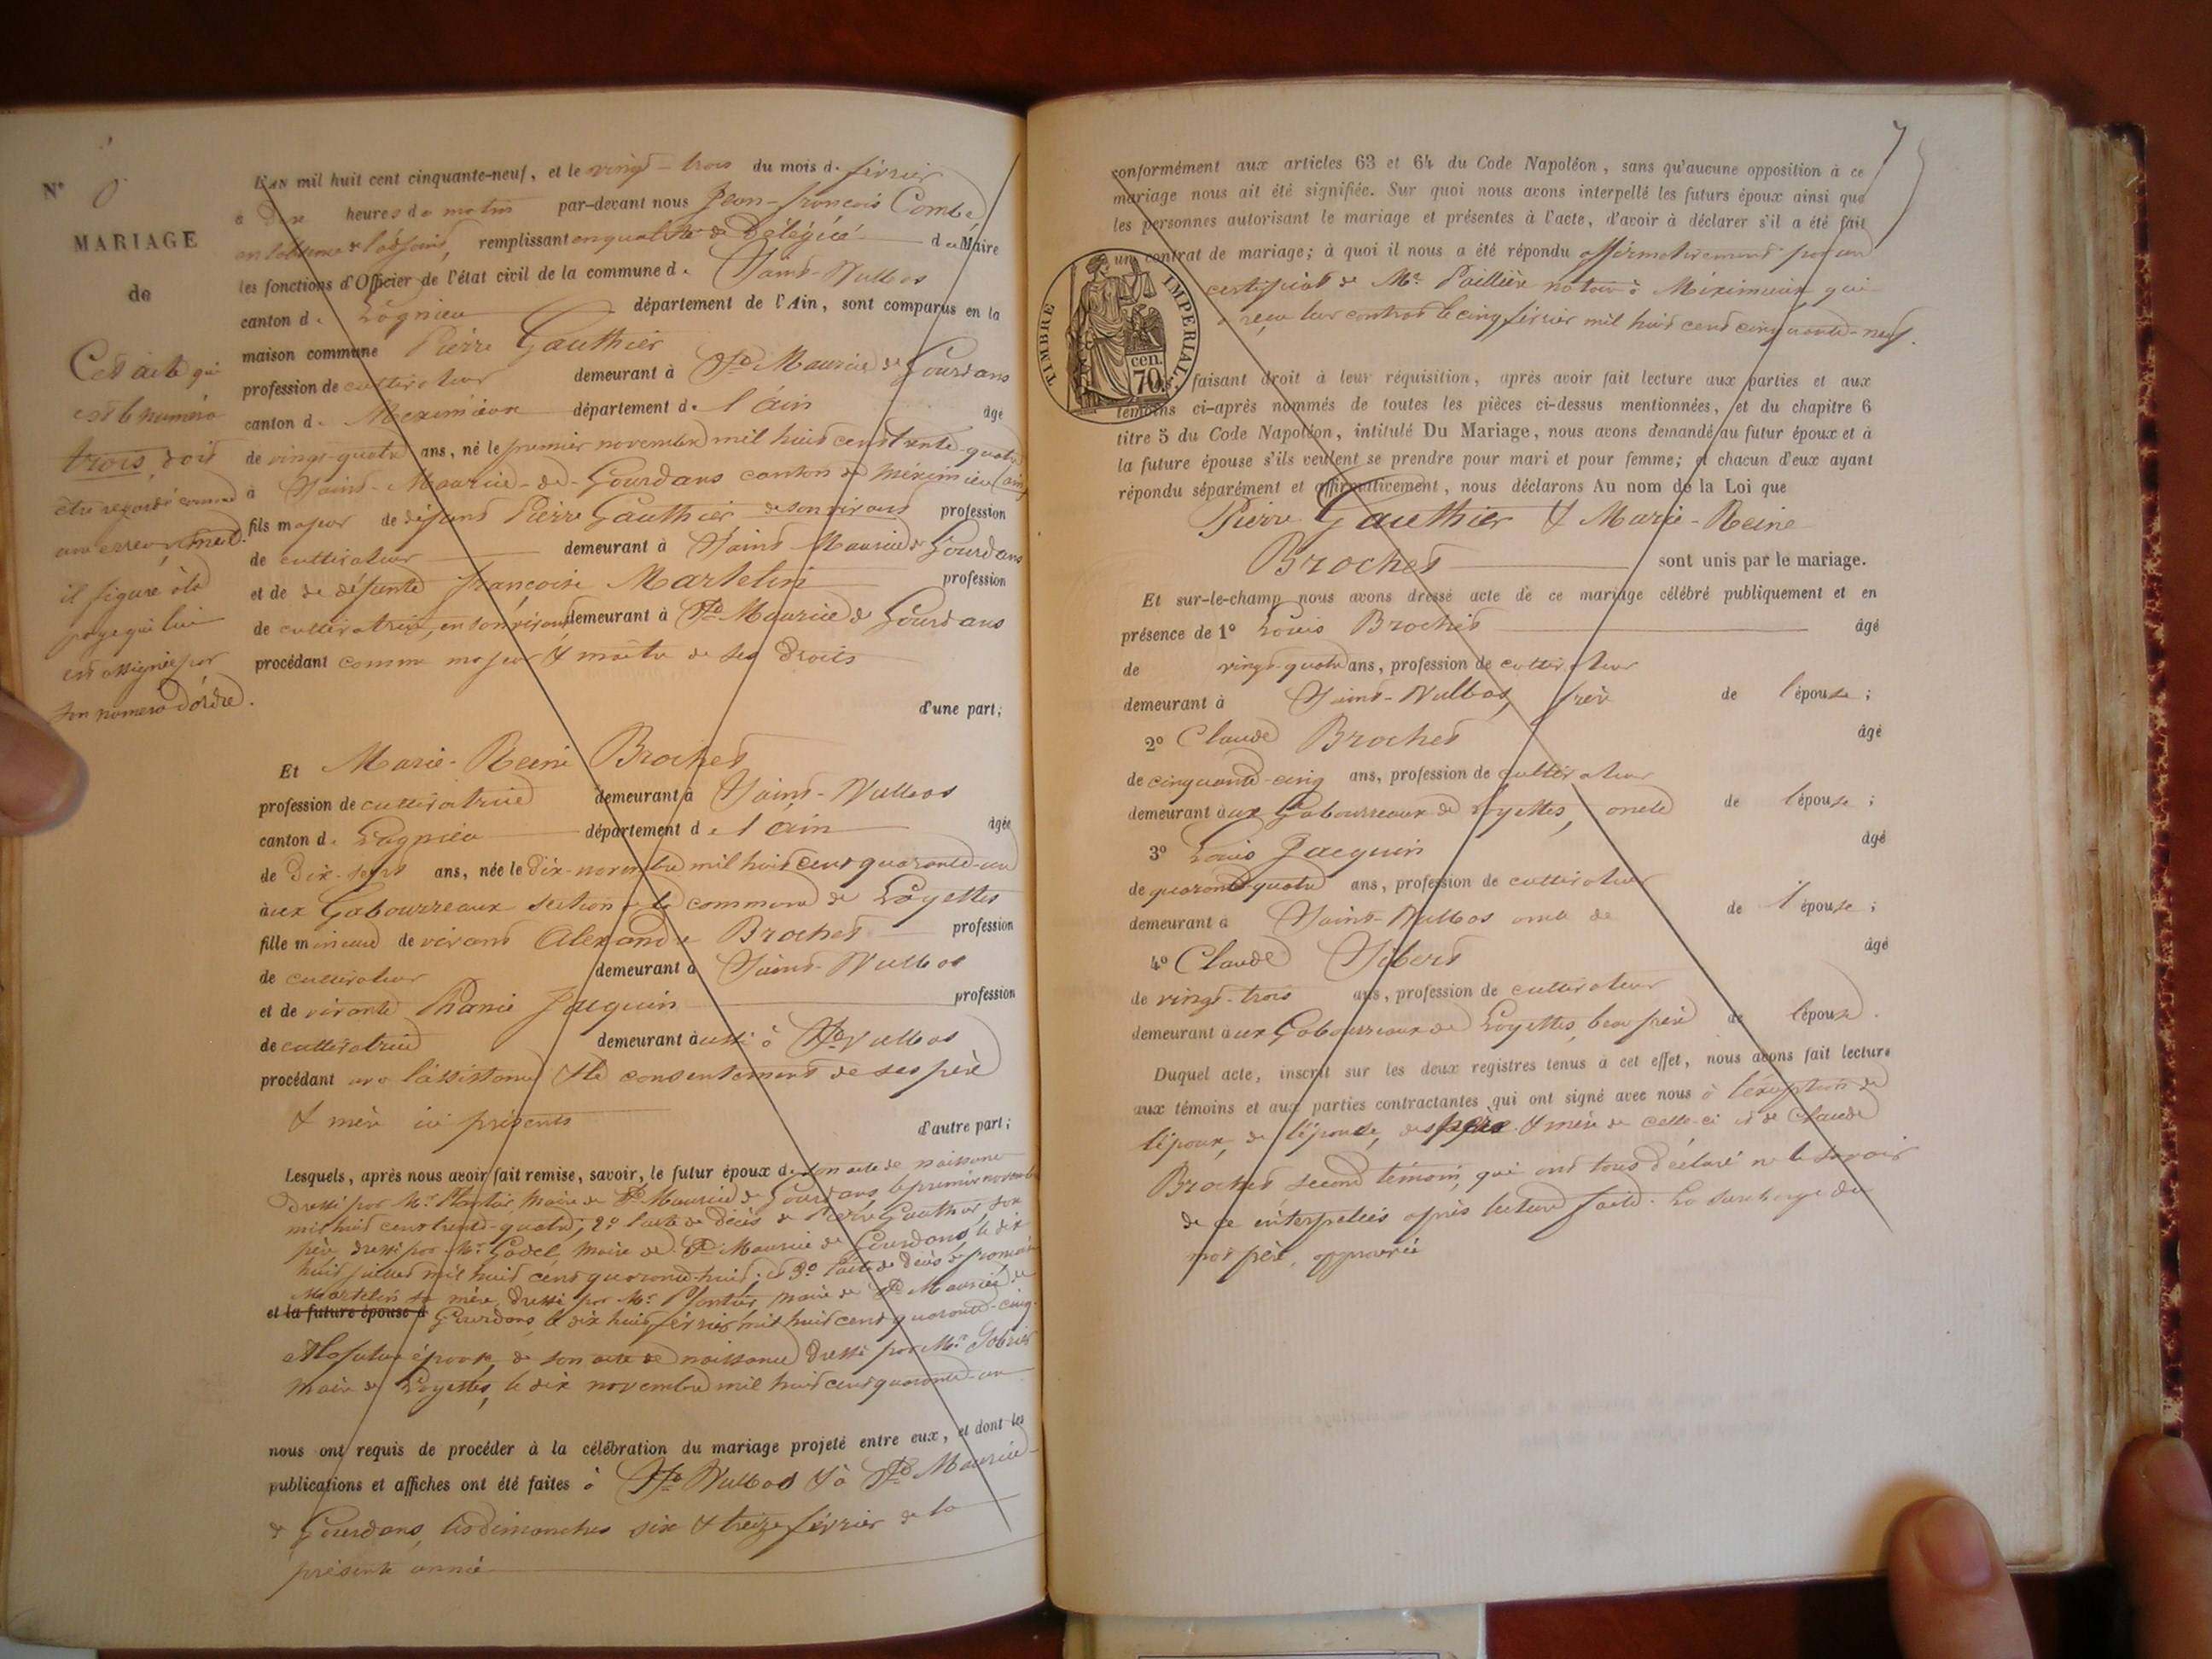 N° 0
MARIAGE
de
Cet acte qui
est le numéro
trois, doit
être regardé comme
non
il figure à la
page qui lui
est assignée par
son numéro d'ordre.
L'AN mil huit cent cinquante-neuf, et le vingt-trois du mois de février
à Dix heures du matin par-devant nous Jean-françois Combe
en l'absence de l'adjoint, remplissant en qualité de Délégué du Maire
les fonctions d'Officier de l'état civil de la commune de Saint-Vulbas
canton de Lagnieu département de l'Ain, sont comparus en la
maison commune Pierre Gauthier
profession de cultivateur demeurant à St Maurice de Gourdans
canton de Meximieux département de l'ain âgé
de vingt-quatre ans, né le premier novembre mil huit cent trente-quatre
à Saint-Maurice-de-Gourdans canton de Méximieux (ain)
fils majeur de défunt Pierre Gauthier de son vivant profession
de cultivateur demeurant à Saint Maurice de Gourdans
et de de défunte françoise Martelin profession
de cultivatrice, en son vivant demeurant à St Maurice de Gourdans
procédant comme majeur & maître de ses droits
d'une part;
Et Marie-Reine Brochet
profession de cultivatrice demeurant à Saint-Vulbas
canton de Lagnieu département de l'ain âgée
de Dix-sept ans, née le dix-novembre mil huit cent quarante-un
aux Gabourreaux section de la commune de Loyettes
fille mineure de vivant Alexandre Brochet profession
de cultivateur demeurant à Saint-Vulbas
et de vivante Jacquin profession
de cultivatrice demeurant aussi à St Vulbas
procédant avec l'assistance & le consentement de ses père
& mère ici présents
d'autre part;
Lesquels, après nous avoir fait remise, savoir, le futur époux de son acte de naissance
Dressé par Mr maire de St Maurice de Gourdans le premier novembre
mil huit cent trente-quatre; 2° l'acte de Décès de Pierre Gauthier son
père, dressé par Mr Godel, maire de St Maurice de Gourdans, le dix
huit juillet mil huit cent quarante-huit; et 3° l'acte de Décès de françoise
Martelin sa mère, dressé par Mr maire de St Maurice de
et la future épouse d Gourdans, le dix huit février mil huit cent quarante-cinq.
& la future épouse, de son acte de naissance Dressé par Mr
maire de Loyettes, le dix novembre mil huit cent quarante-un
nous ont requis de procéder à la célébration du mariage projeté entre eux, et dont les
publications et affiches ont été faites à St Vulbas & à St Maurice
de Gourdans, les dimanches six & treize février de la
présente année
7
conformément aux articles 63 et 64 du Code Napoléon, sans qu'aucune opposition à ce
mariage nous ait été signifiée. Sur quoi nous avons interpellé les futurs époux ainsi que
les personnes autorisant le mariage et présentes à l'acte, d'avoir à déclarer s'il a été fait
un contrat de mariage; à quoi il nous a été répondu affirmativement par un
certificat de Me Paillière notaire à Méximieux qui
a reçu leur contrat le cinq février mil huit cent cinquante-neuf.
TIMBRE IMPERIAL
70 cen.
faisant droit à leur réquisition, après avoir fait lecture aux parties et aux
témoins ci-après nommés de toutes les pièces ci-dessus mentionnées, et du chapitre 6
titre 5 du Code Napoléon, intitulé Du Mariage, nous avons demandé au futur époux et à
la future épouse s'ils veulent se prendre pour mari et pour femme; et chacun d'eux ayant
répondu séparément et affirmativement, nous déclarons Au nom de la Loi que
Pierre Gauthier & Marie-Reine
Brochet sont unis par le mariage.
Et sur-le-champ nous avons dressé acte de ce mariage célébré publiquement et en
présence de 1° Louis Brochet âgé
de vingt-quatre ans, profession de cultivateur
demeurant à Saint-Vulbas, frère de l'épouse;
2° Claude Brochet âgé
de cinquante-cinq ans, profession de cultivateur
demeurant aux Gabourreaux de Loyettes, oncle de l'épouse;
3° Louis Jacquin âgé
de quarante-quatre ans, profession de cultivateur
demeurant à Saint-Vulbas oncle de de l'épouse;
4° Claude Sibert âgé
de vingt-trois ans, profession de cultivateur
demeurant aux Gabourreaux de Loyettes, beau frère de l'épouse.
Duquel acte, inscrit sur les deux registres tenus à cet effet, nous avons fait lecture
aux témoins et aux parties contractantes qui ont signé avec nous à l'exception de
l'époux, de l'épouse, des père & mère de celle-ci et de Claude
Brochet second témoin, qui ont tous déclaré ne le savoir
de ce interpellés après lecture faite. La surcharge du
mot père, approuvée